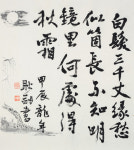 白髮三千丈緣愁
似箇長不知明
鏡里何處得
秋霜
甲辰龍年
書